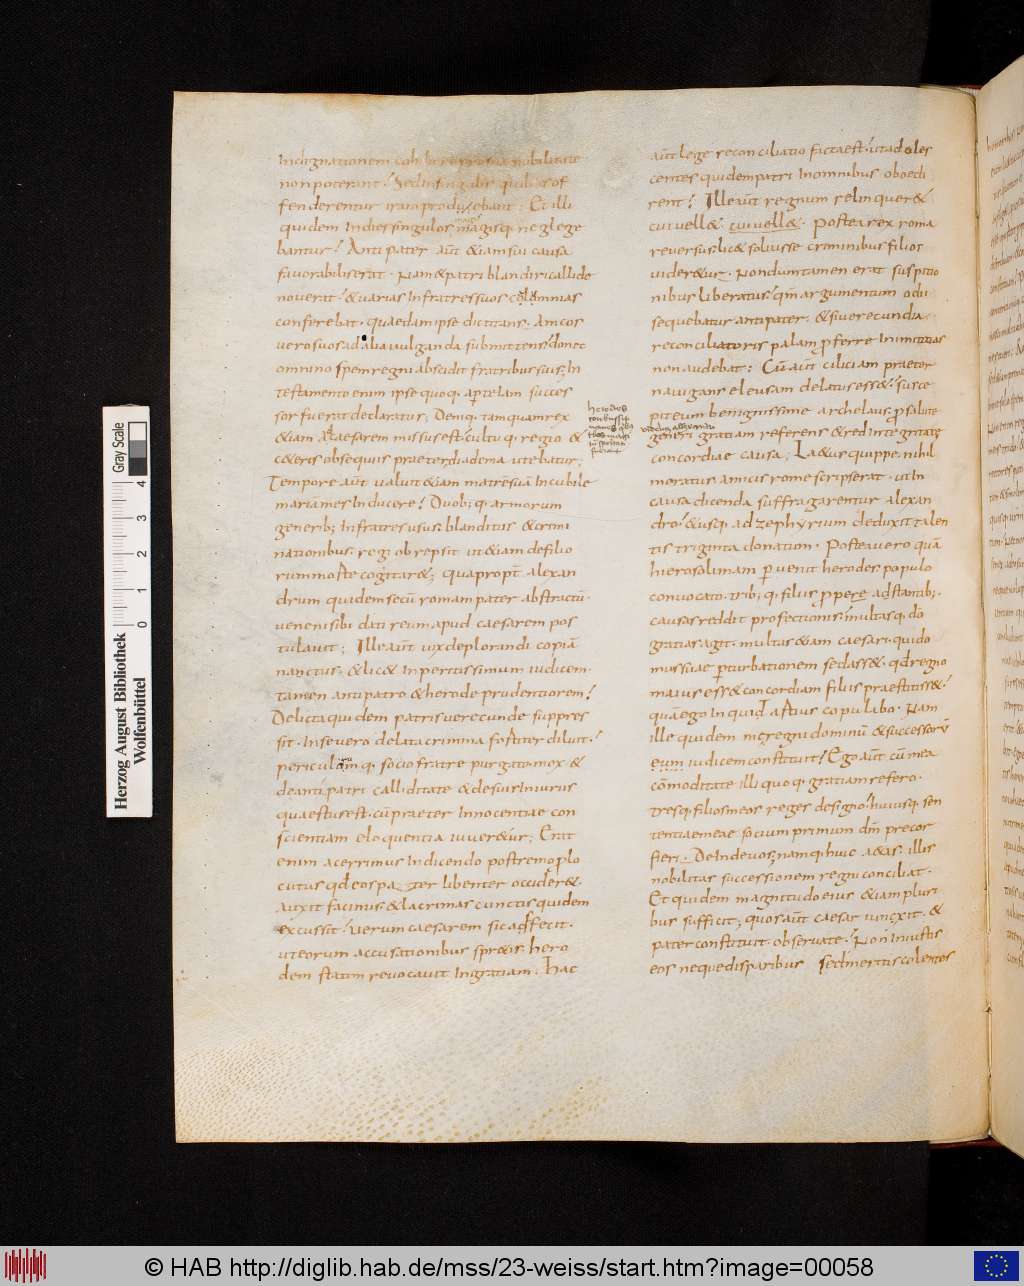 Indignationem cohibere prae nobilitate
non poterant. Sed in singulis quibus of
fenderentur iram producebant. Et illi
quidem Indies singulos magisq; neglege
bantur. Antipater aūt &iam sui causa
fauorabilis erat. Nam & patri blandiri callide
nouerat. & uarias In fratres suos colomnias
conferebat. quaedam ipse dictitans. Amicos
uero suos ad alia uulganda submittens. donec
omnino spem regni abscidit fratribus suis; In
testamento enim ipse quoq; aperte iam succes
sor fuerat declaratus; Deniq; tamquam rex
&iam ad caesarem missus est. cultuq; regio &
c&eris obsequiis praeter diadema utebatur;
Tempore aūt ualuit &iam matrem suā In cubile
mariāmes Inducere. Duob; q; armorum
generib; In fratres usus. blanditiis & crimi
nationibus. regi obrepsit. ut &iam de filio
rum morte cogitar&; quapropt alexan
drum quidem secū romam pater abstractū.
ueneni sibi dati reum apud caesarem pos
tulauit; Ille aūt uix deplorandi copiā
nanctus. & lic& Inperitissimum iudicem.
tamen antipatro & herode prudentiorem.
Delicta quidem patris uerecunde suppres
sit. In se uero delata crimina fortiter diluit.
periculi q; socio fratre purgato. mox &
de antipatri calliditate & de suis Iniuriis
quaestus est. cū praeter Innocentiae con
scientiam eloquentia iuuar&ur; Erat
enim acerrimus In dicendo. postremo plo
cutus qđ eos pater libenter occider&.
Auxit facinus. & lacrimas cunctis quidem
excussit. Uerum caesarem sic adfecit.
ut eorum accusationibus spr&is. hero
dem statim reuocauit In gratiam. hac
aūt lege reconciliatio facta est. ut adoles
centes quidem patri In omnibus oboedi
rent. Ille aūt regnum relinquer&.
cui uell&. cui uell&. Post ea rex roma
reuersus. lic& soluisse criminibus filios
uider&ur. Non dum tamen erat suspitio
nibus liberatus. q̄m argumentum odii
sequebatur antipater. & si uerecundia
reconciliatoris palam pferre Inimicitias
non audebat; Cū aūt ciliciam praeter
nauigans eleusam delatus ess&. susce
pit eum benignissime archelaus. p salute
generi gratiam referens & redintegritate
concordiae causa; La&us quippe. nihil
moratus amicis rome scripserat. ut In
causa dicenda suffragarentur alexan
dro. &usq; ad zephyrium deduxit talen
tis triginta donatum. Postea uero quā
hierosolimam puenit herodes populo
conuocato. trib; q; filiis ppere adstantib;.
causas reddit profectionis. multasq; dō
gratias agit. multas &iam caesari. qui do
mus suae pturbationem sedass&. qđ regno
maius ess& concordiam filiis praestitiss&.
quā ego Inquid artius copulabo. Nam
ille quidem me regni dominū & successorū
eum iudicem constituit. Ego aūt cū mea
cōmoditate illi quoq; gratiam refero.
tresq; filios meos reges designo. huiusq; sen
tentiae meae socium primum dm̄ precor
fieri. Deinde uos; namq; huic a&as. illis
nobilitas successionem regni conciliat.
Et quidem magnitudo eius &iam pluri
bus sufficit; quos aūt caesar iunxit. &
pater constituit. obseruate. Non iniustis
eos neque disparibus sed meritis colentes
Herzog August Bibliothek
Wolfenbüttel
0 1 2 3 4
Gray Scale
© HAB http://diglib.hab.de/mss/23-weiss/start.htm?image=00058